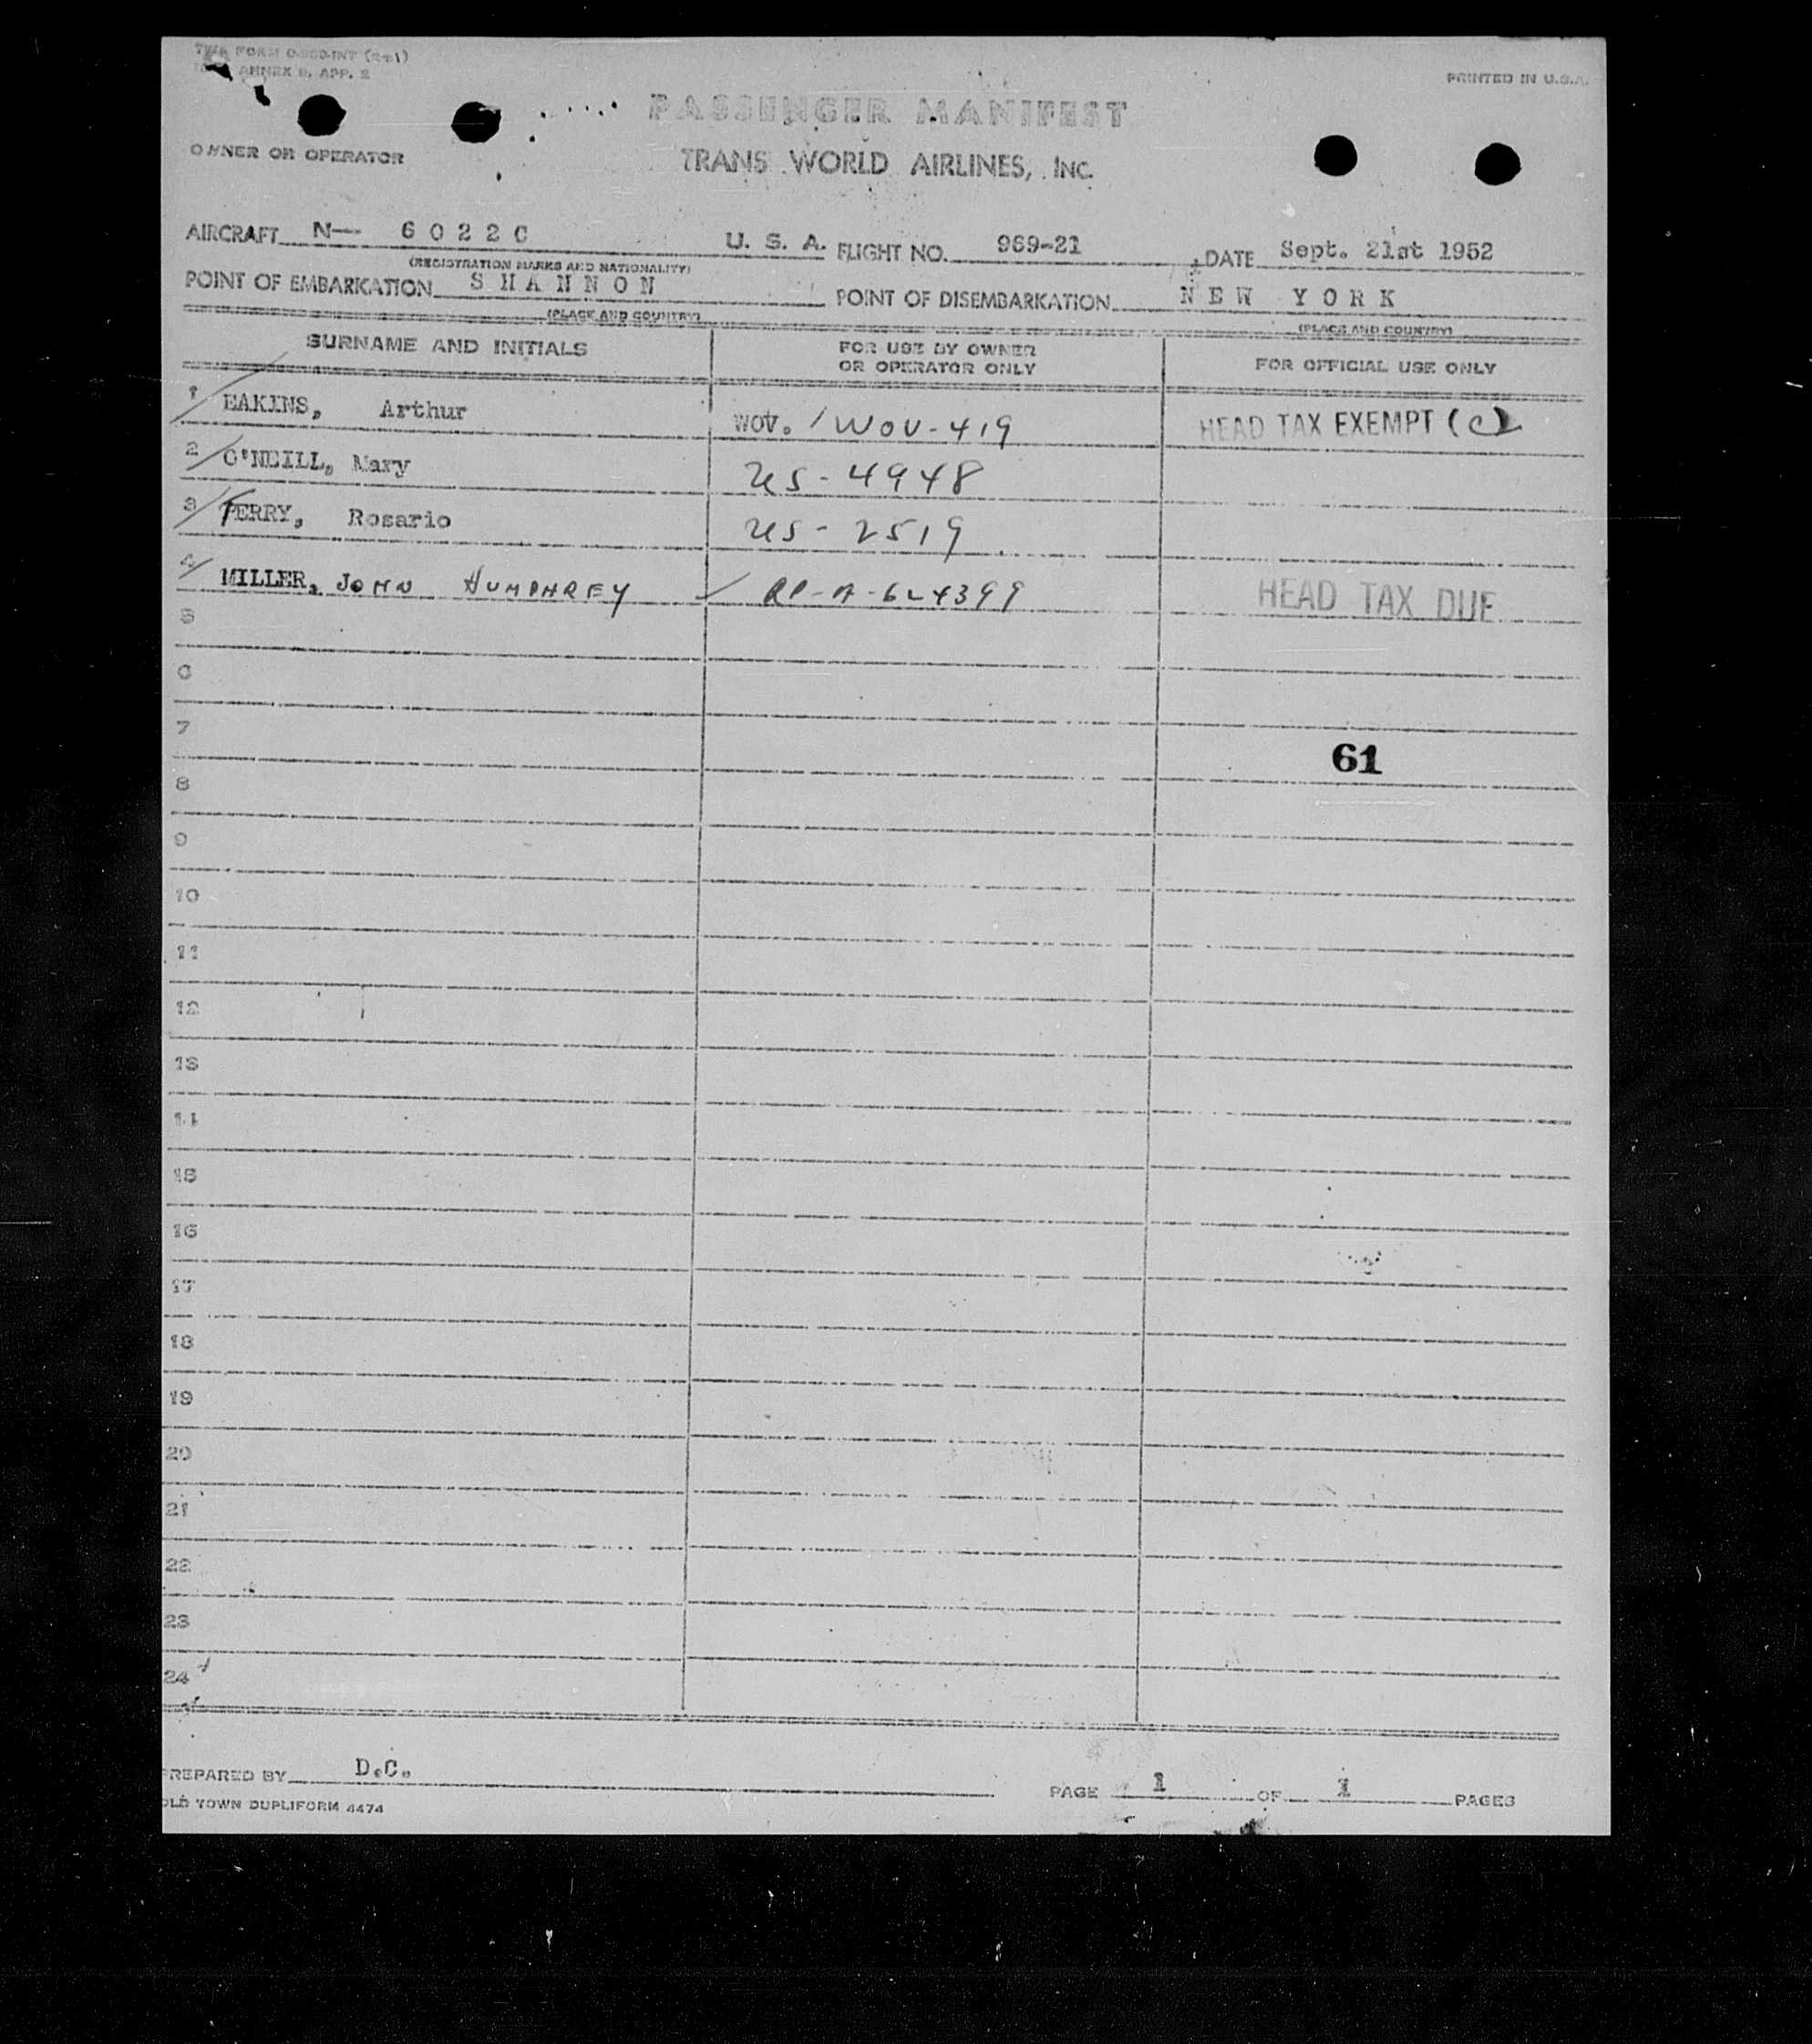 TWA FORM
ANNEX 9, APP. 2
PRINTED IN U.S.A.
PASSENGER MANIFEST
OWNER OR OPERATOR
TRANS WORLD AIRLINES, INC.
AIRCRAFT N— 6022C U. S. A. FLIGHT NO. 969-21 DATE Sept. 21st 1952
(REGISTRATION MARKS AND NATIONALITY)
POINT OF EMBARKATION SHANNON POINT OF DISEMBARKATION NEW YORK
(PLACE AND COUNTRY) (PLACE AND COUNTRY)
SURNAME AND INITIALS FOR USE BY OWNER OR OPERATOR ONLY FOR OFFICIAL USE ONLY
1 EAKINS, Arthur WOV. / WOV-419 HEAD TAX EXEMPT (C)
2 O'NEILL, Mary US-4948
3 FERRY, Rosario US-2519
4 MILLER, JOHN HUMPHREY RP-A-624399 HEAD TAX DUE
5
6
7
61
8
9
10
11
12
13
14
15
16
17
18
19
20
21
22
23
24
PREPARED BY D.C. PAGE 1 OF 1 PAGES
OLD TOWN DUPLIFORM 4474